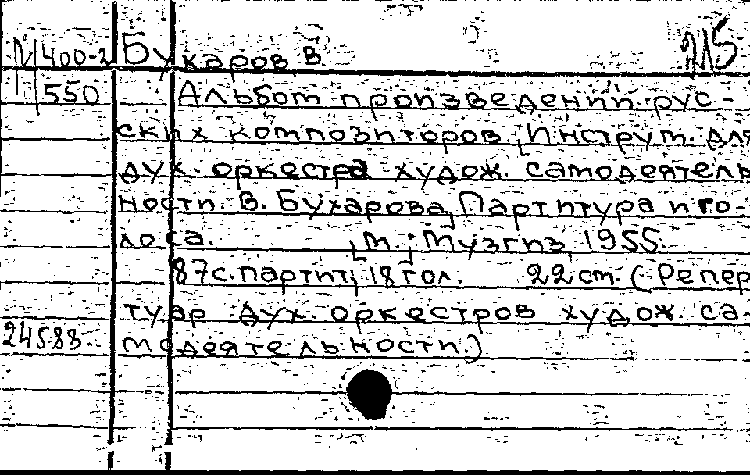 М400-2 Бухаров В 215
550 Альбом произведений рус-
ских композиторов, Инструм. для
дух. оркестра худож. самодеятель
ности. В. Бухарова, Партитура и го-
лоса. М.; Музгиз, 1955.
87с. партит, 18 гол. 22 cm. (Репер
туар дух. оркестров худож. са-
24583 модеятельности.)